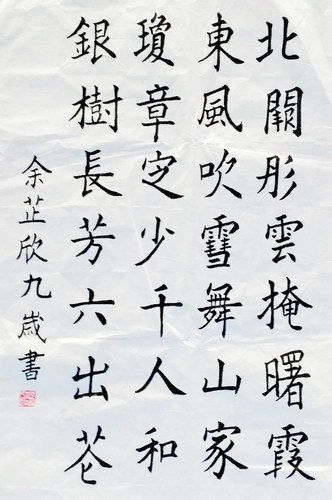 北闕彤雲掩曙霞
東風吹雪舞山家
瓊章定少千人和
銀樹長芳六出花
余芷欣九歲書